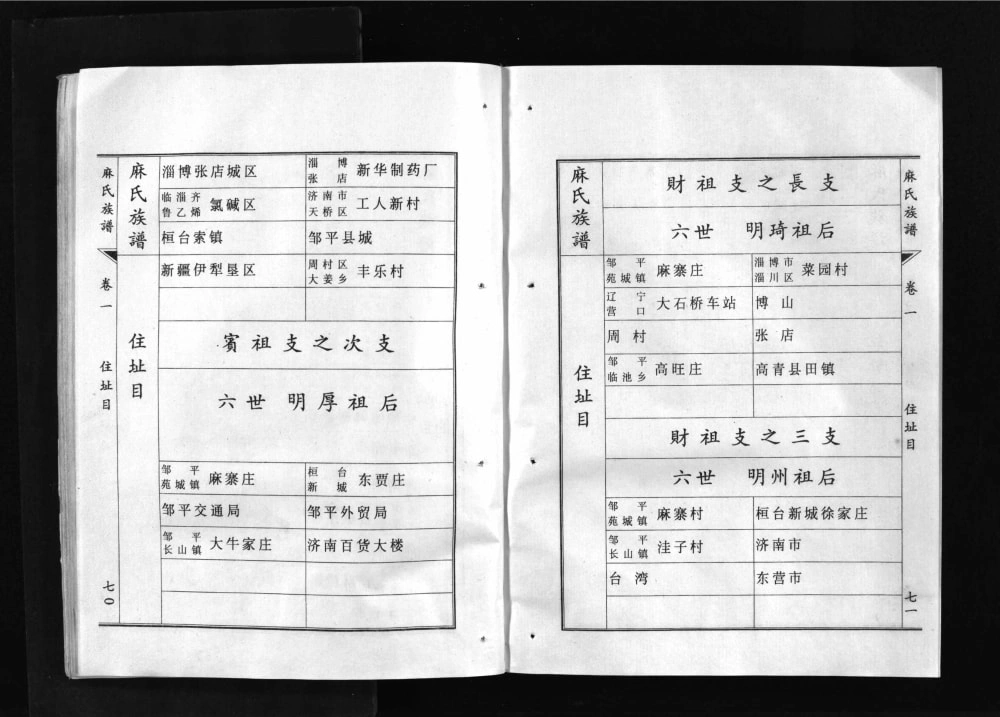 麻氏族譜
卷一
住址目
七〇
麻氏族譜
住址目
淄博张店城区
淄博张店 新华制药厂
临淄齐鲁乙烯 氯碱区
济南市天桥区 工人新村
桓台索镇
邹平县城
新疆伊犁垦区
周村区大姜乡 丰乐村
賓祖支之次支
六世 明厚祖后
邹平苑城镇 麻寨庄
桓台新城 东贾庄
邹平交通局
邹平外贸局
邹平长山镇 大牛家庄
济南百货大楼
麻氏族譜
住址目
財祖支之長支
六世 明琦祖后
邹平苑城镇 麻寨庄
淄博市淄川区 菜园村
辽宁营口 大石桥车站
博山
周村
张店
邹平临池乡 高旺庄
高青县田镇
財祖支之三支
六世 明州祖后
邹平苑城镇 麻寨村
桓台新城徐家庄
邹平长山镇 洼子村
济南市
台湾
东营市
麻氏族譜
卷一
住址目
七一